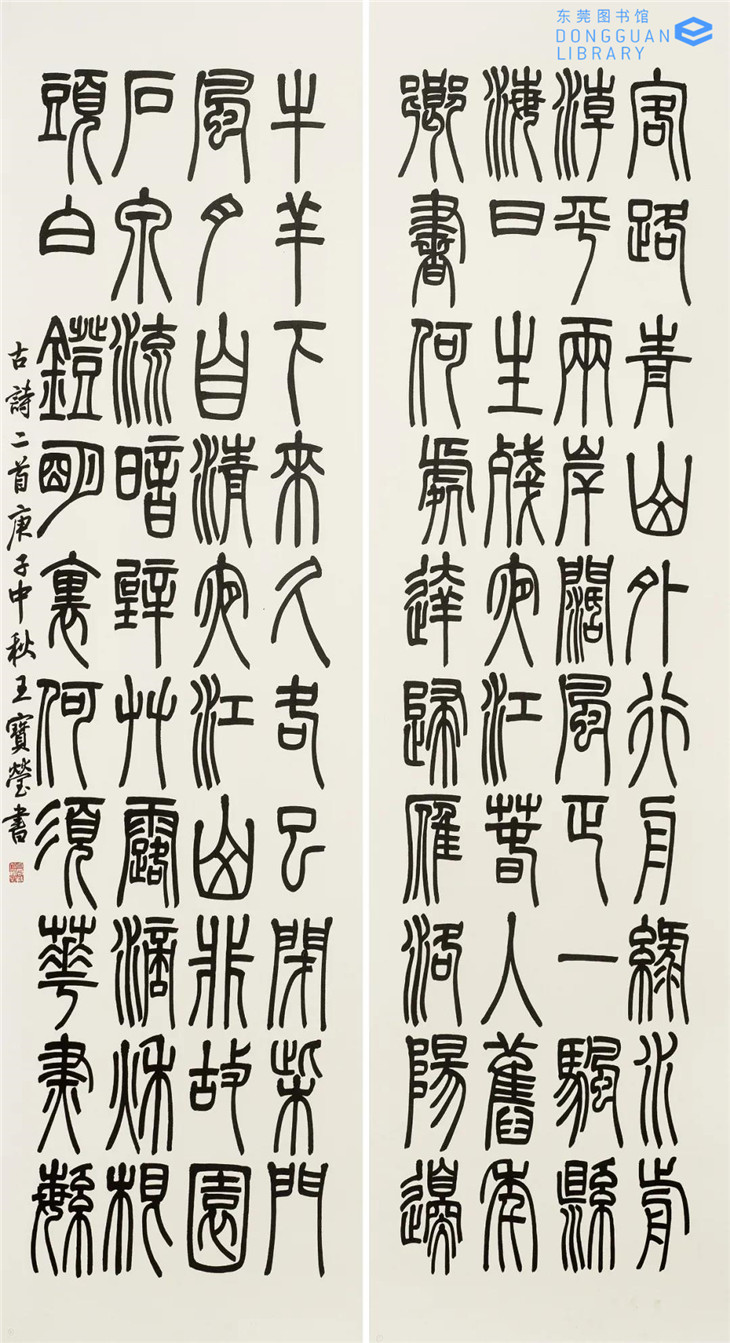 东莞图书馆
DONGGUAN
LIBRARY
客路青山外行舟綠水前
潮平兩岸闊風正一颿縣
海日生殘夜江春入舊年
鄉書何處達歸雁洛陽邊
牛羊下來久各已閉柴門
風月自清夜江山非故園
石泉流暗壁艸露滴秋根
頭白鐙明裏何須華燼繁
古詩二首庚子中秋王寶瑩書